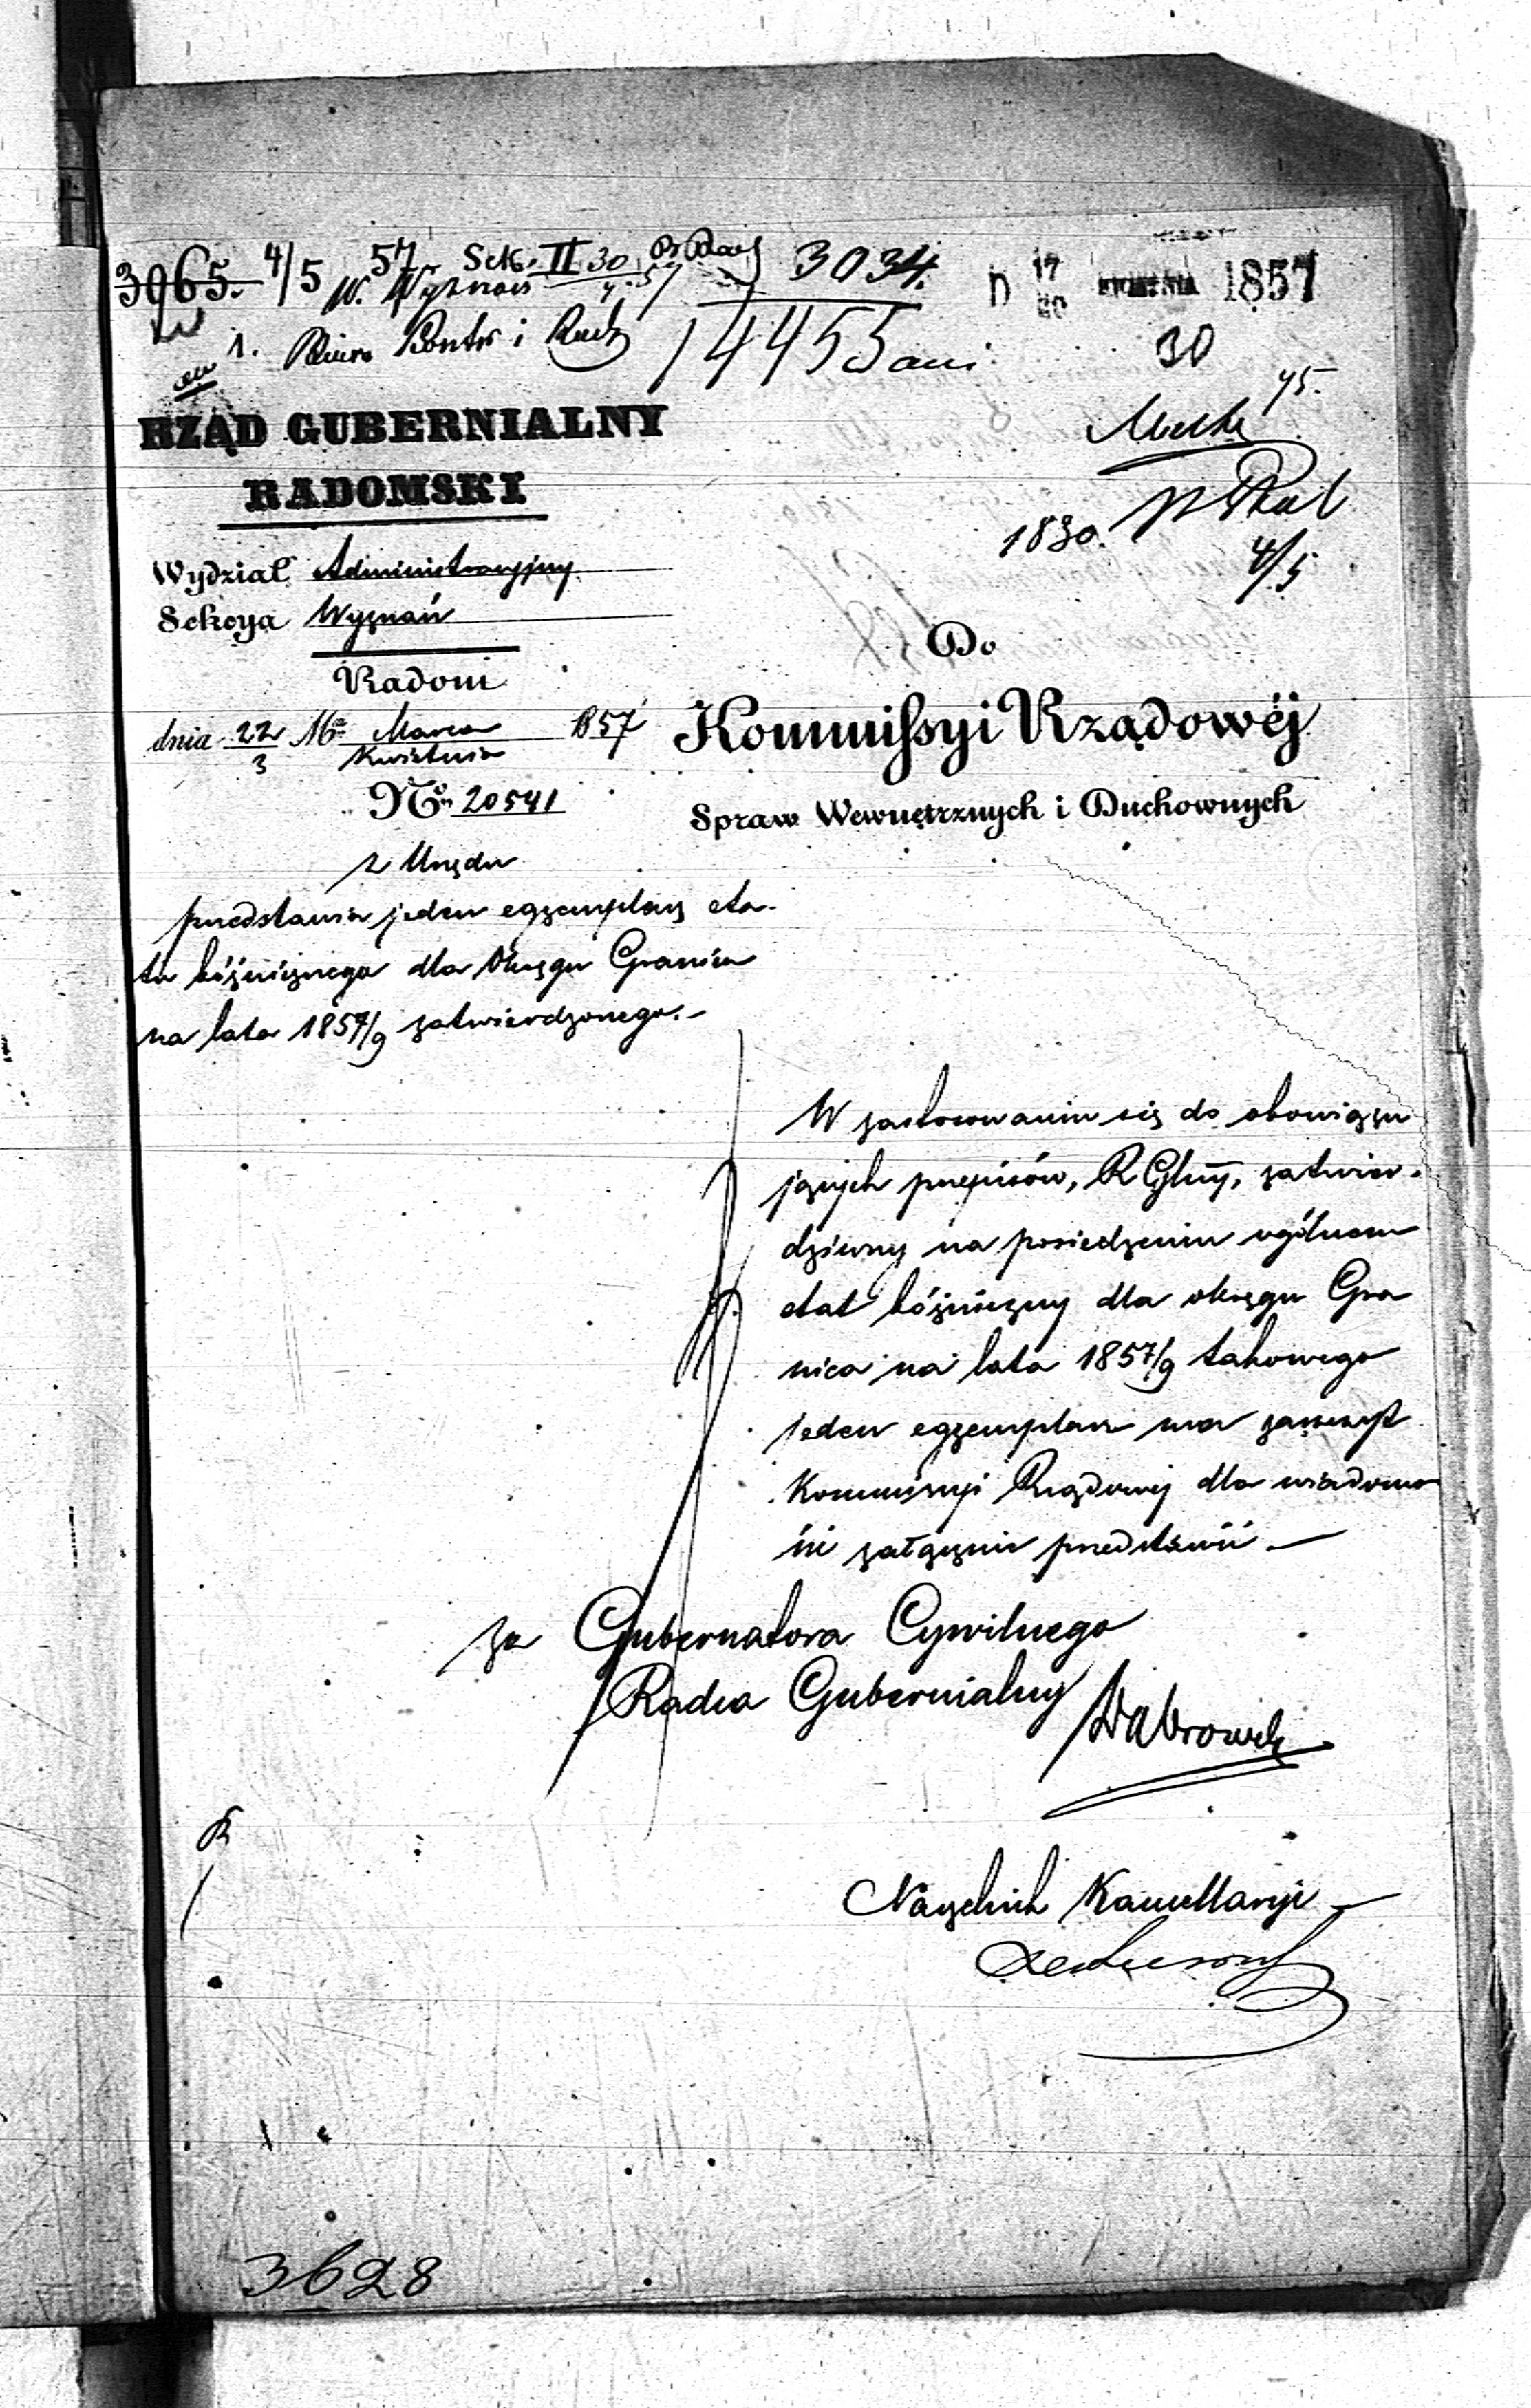 3965. 4/5 57 Sek. II 30 3034. D 17 KWIETNIA 1857
W. Wyznań
1. Biuro Kontr i Rach 14455 30
RZĄD GUBERNIALNY
RADOMSKI
1830.
4/5
Wydział Administracyjny
Sekcya Wyznań
Radom
dnia 22/3 Mca Marca/Kwietnia 1857
No 20541
Do
Kommissyi Rządowéj
Spraw Wewnętrznych i Duchownych
z Urzędu
przedstawia jeden egzemplarz eta-
tu bóżniczego dla Okręgu Granica
na lata 1857/9 zatwierdzonego.-
W zastosowaniu się do obowiązu
jących przepisów, R Glny, zatwier-
dziwszy na posiedzeniu ogólnem
etat bóżniczny dla okręgu Gra
nica na lata 1857/9 takowego
jeden egzemplarz ma zaszczyt
Kommissyi Rządowej dla wiadomo
ści załącznie przedstawić —
za Gubernatora Cywilnego
Radca Gubernialny Dąbrowski
Naczelnik Kancellaryi
3628